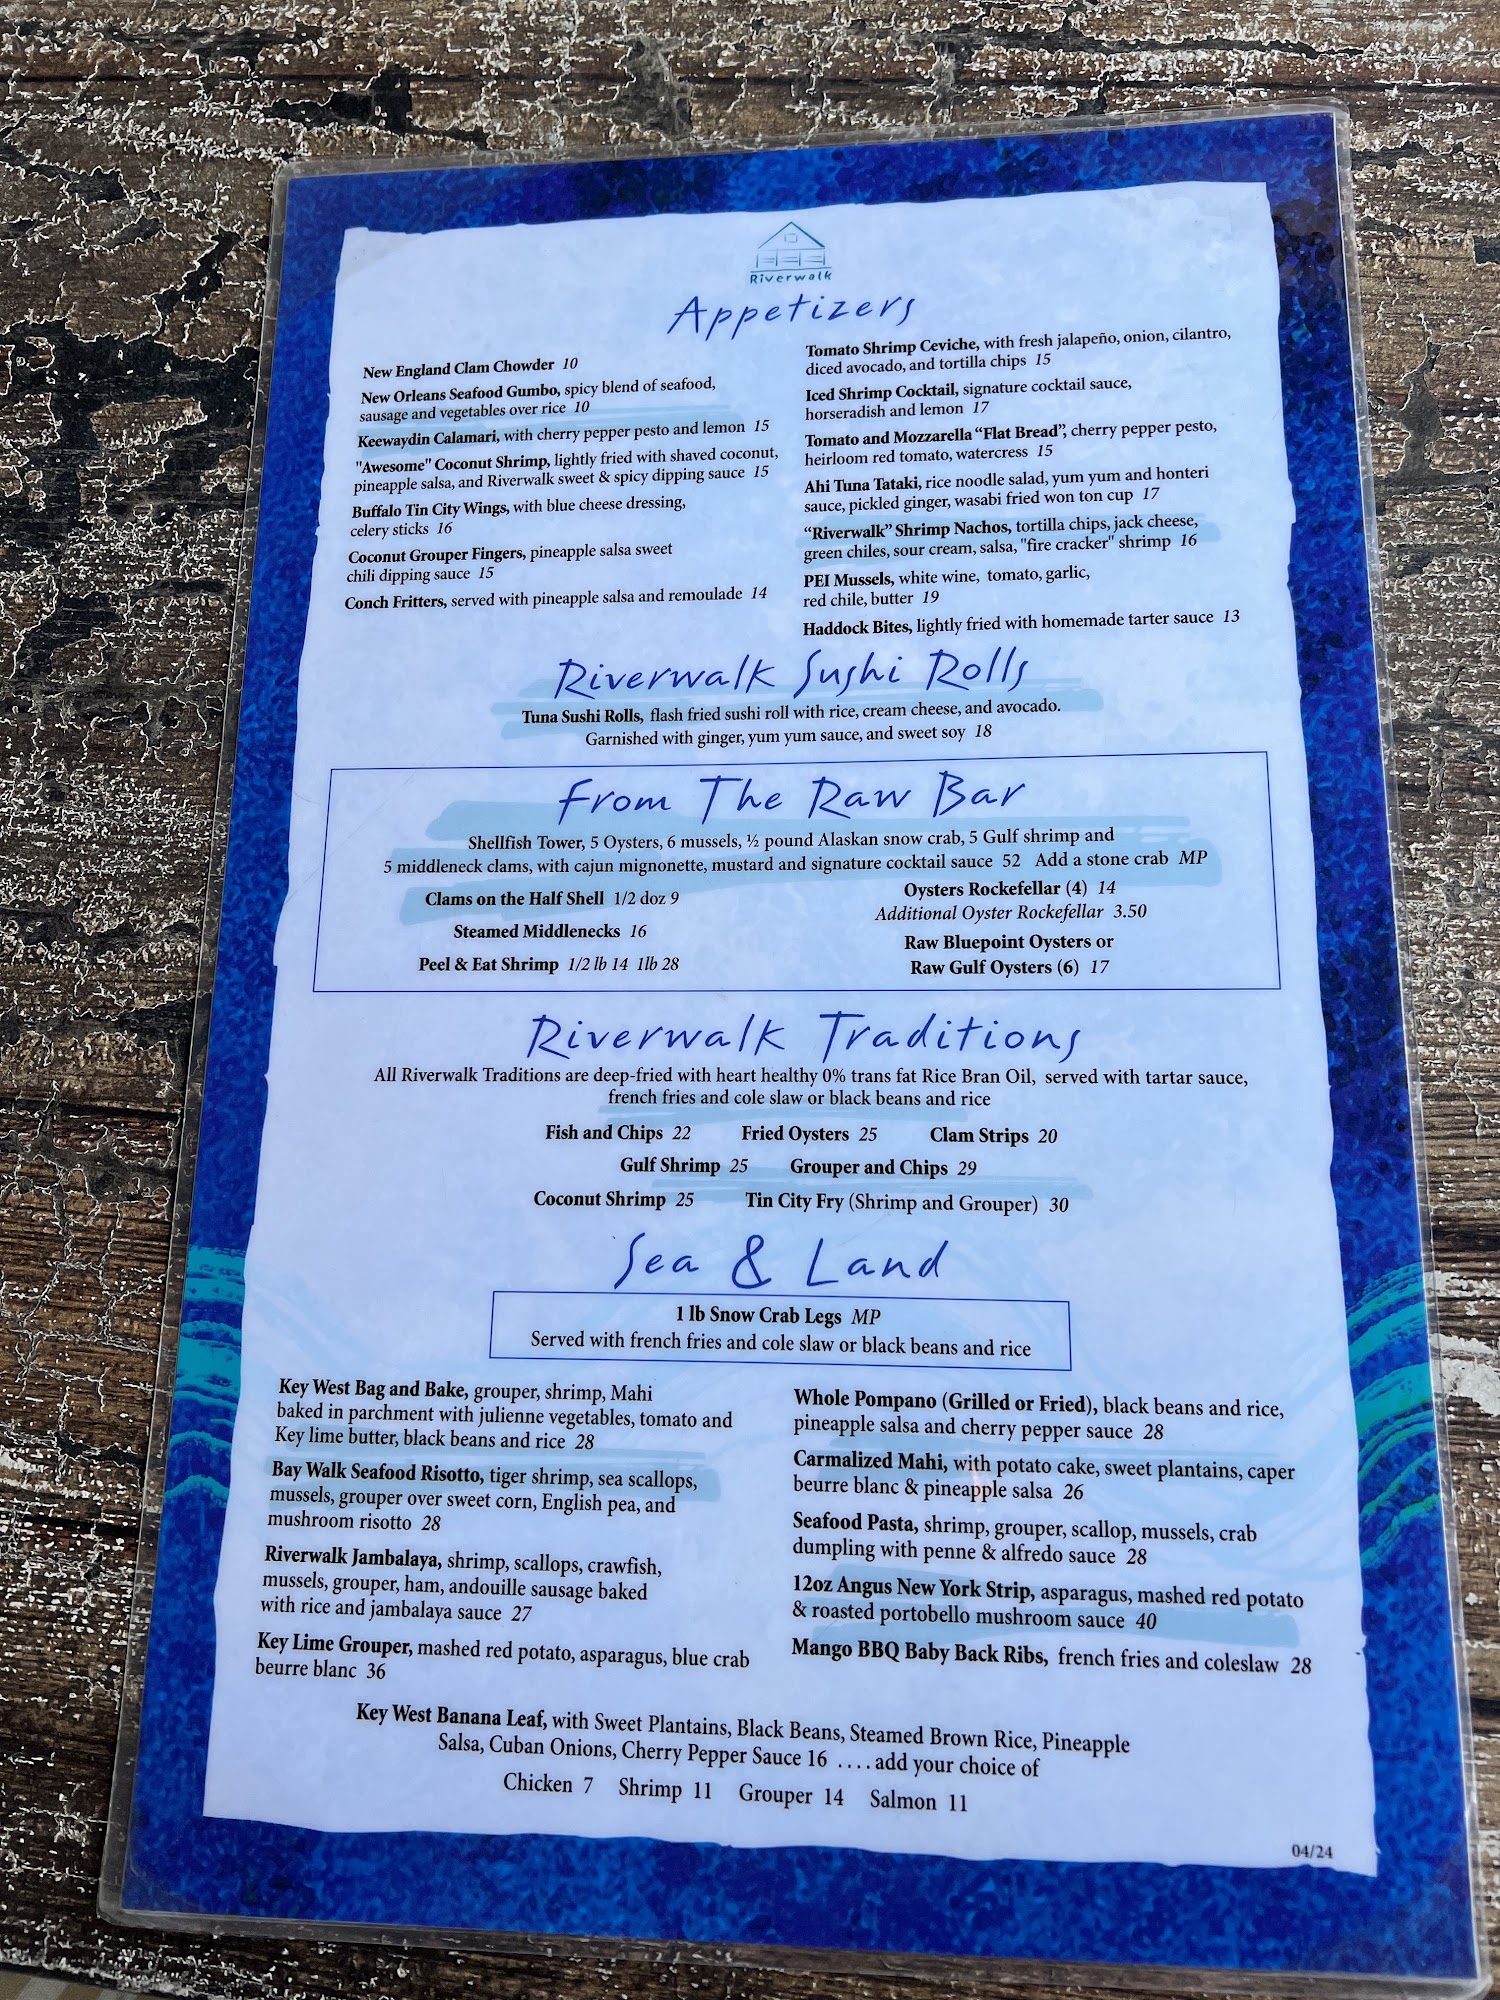 Riverwalk
Appetizers
New England Clam Chowder 10
New Orleans Seafood Gumbo, spicy blend of seafood,
sausage and vegetables over rice 10
Keewaydin Calamari, with cherry pepper pesto and lemon 15
"Awesome" Coconut Shrimp, lightly fried with shaved coconut,
pineapple salsa, and Riverwalk sweet & spicy dipping sauce 15
Buffalo Tin City Wings, with blue cheese dressing,
celery sticks 16
Coconut Grouper Fingers, pineapple salsa sweet
chili dipping sauce 15
Conch Fritters, served with pineapple salsa and remoulade 14
Tomato Shrimp Ceviche, with fresh jalapeño, onion, cilantro,
diced avocado, and tortilla chips 15
Iced Shrimp Cocktail, signature cocktail sauce,
horseradish and lemon 17
Tomato and Mozzarella “Flat Bread”, cherry pepper pesto,
heirloom red tomato, watercress 15
Ahi Tuna Tataki, rice noodle salad, yum yum and honteri
sauce, pickled ginger, wasabi fried won ton cup 17
“Riverwalk” Shrimp Nachos, tortilla chips, jack cheese,
green chiles, sour cream, salsa, "fire cracker" shrimp 16
PEI Mussels, white wine, tomato, garlic,
red chile, butter 19
Haddock Bites, lightly fried with homemade tarter sauce 13
Riverwalk Sushi Rolls
Tuna Sushi Rolls, flash fried sushi roll with rice, cream cheese, and avocado.
Garnished with ginger, yum yum sauce, and sweet soy 18
From The Raw Bar
Shellfish Tower, 5 Oysters, 6 mussels, ½ pound Alaskan snow crab, 5 Gulf shrimp and
5 middleneck clams, with cajun mignonette, mustard and signature cocktail sauce 52 Add a stone crab MP
Clams on the Half Shell 1/2 doz 9
Steamed Middlenecks 16
Peel & Eat Shrimp 1/2 lb 14 1lb 28
Oysters Rockefellar (4) 14
Additional Oyster Rockefellar 3.50
Raw Bluepoint Oysters or
Raw Gulf Oysters (6) 17
Riverwalk Traditions
All Riverwalk Traditions are deep-fried with heart healthy 0% trans fat Rice Bran Oil, served with tartar sauce,
french fries and cole slaw or black beans and rice
Fish and Chips 22 Fried Oysters 25 Clam Strips 20
Gulf Shrimp 25 Grouper and Chips 29
Coconut Shrimp 25 Tin City Fry (Shrimp and Grouper) 30
Sea & Land
1 lb Snow Crab Legs MP
Served with french fries and cole slaw or black beans and rice
Key West Bag and Bake, grouper, shrimp, Mahi
baked in parchment with julienne vegetables, tomato and
Key lime butter, black beans and rice 28
Bay Walk Seafood Risotto, tiger shrimp, sea scallops,
mussels, grouper over sweet corn, English pea, and
mushroom risotto 28
Riverwalk Jambalaya, shrimp, scallops, crawfish,
mussels, grouper, ham, andouille sausage baked
with rice and jambalaya sauce 27
Key Lime Grouper, mashed red potato, asparagus, blue crab
beurre blanc 36
Whole Pompano (Grilled or Fried), black beans and rice,
pineapple salsa and cherry pepper sauce 28
Carmalized Mahi, with potato cake, sweet plantains, caper
beurre blanc & pineapple salsa 26
Seafood Pasta, shrimp, grouper, scallop, mussels, crab
dumpling with penne & alfredo sauce 28
12oz Angus New York Strip, asparagus, mashed red potato
& roasted portobello mushroom sauce 40
Mango BBQ Baby Back Ribs, french fries and coleslaw 28
Key West Banana Leaf, with Sweet Plantains, Black Beans, Steamed Brown Rice, Pineapple
Salsa, Cuban Onions, Cherry Pepper Sauce 16 ....add your choice of
Chicken 7 Shrimp 11 Grouper 14 Salmon 11
04/24